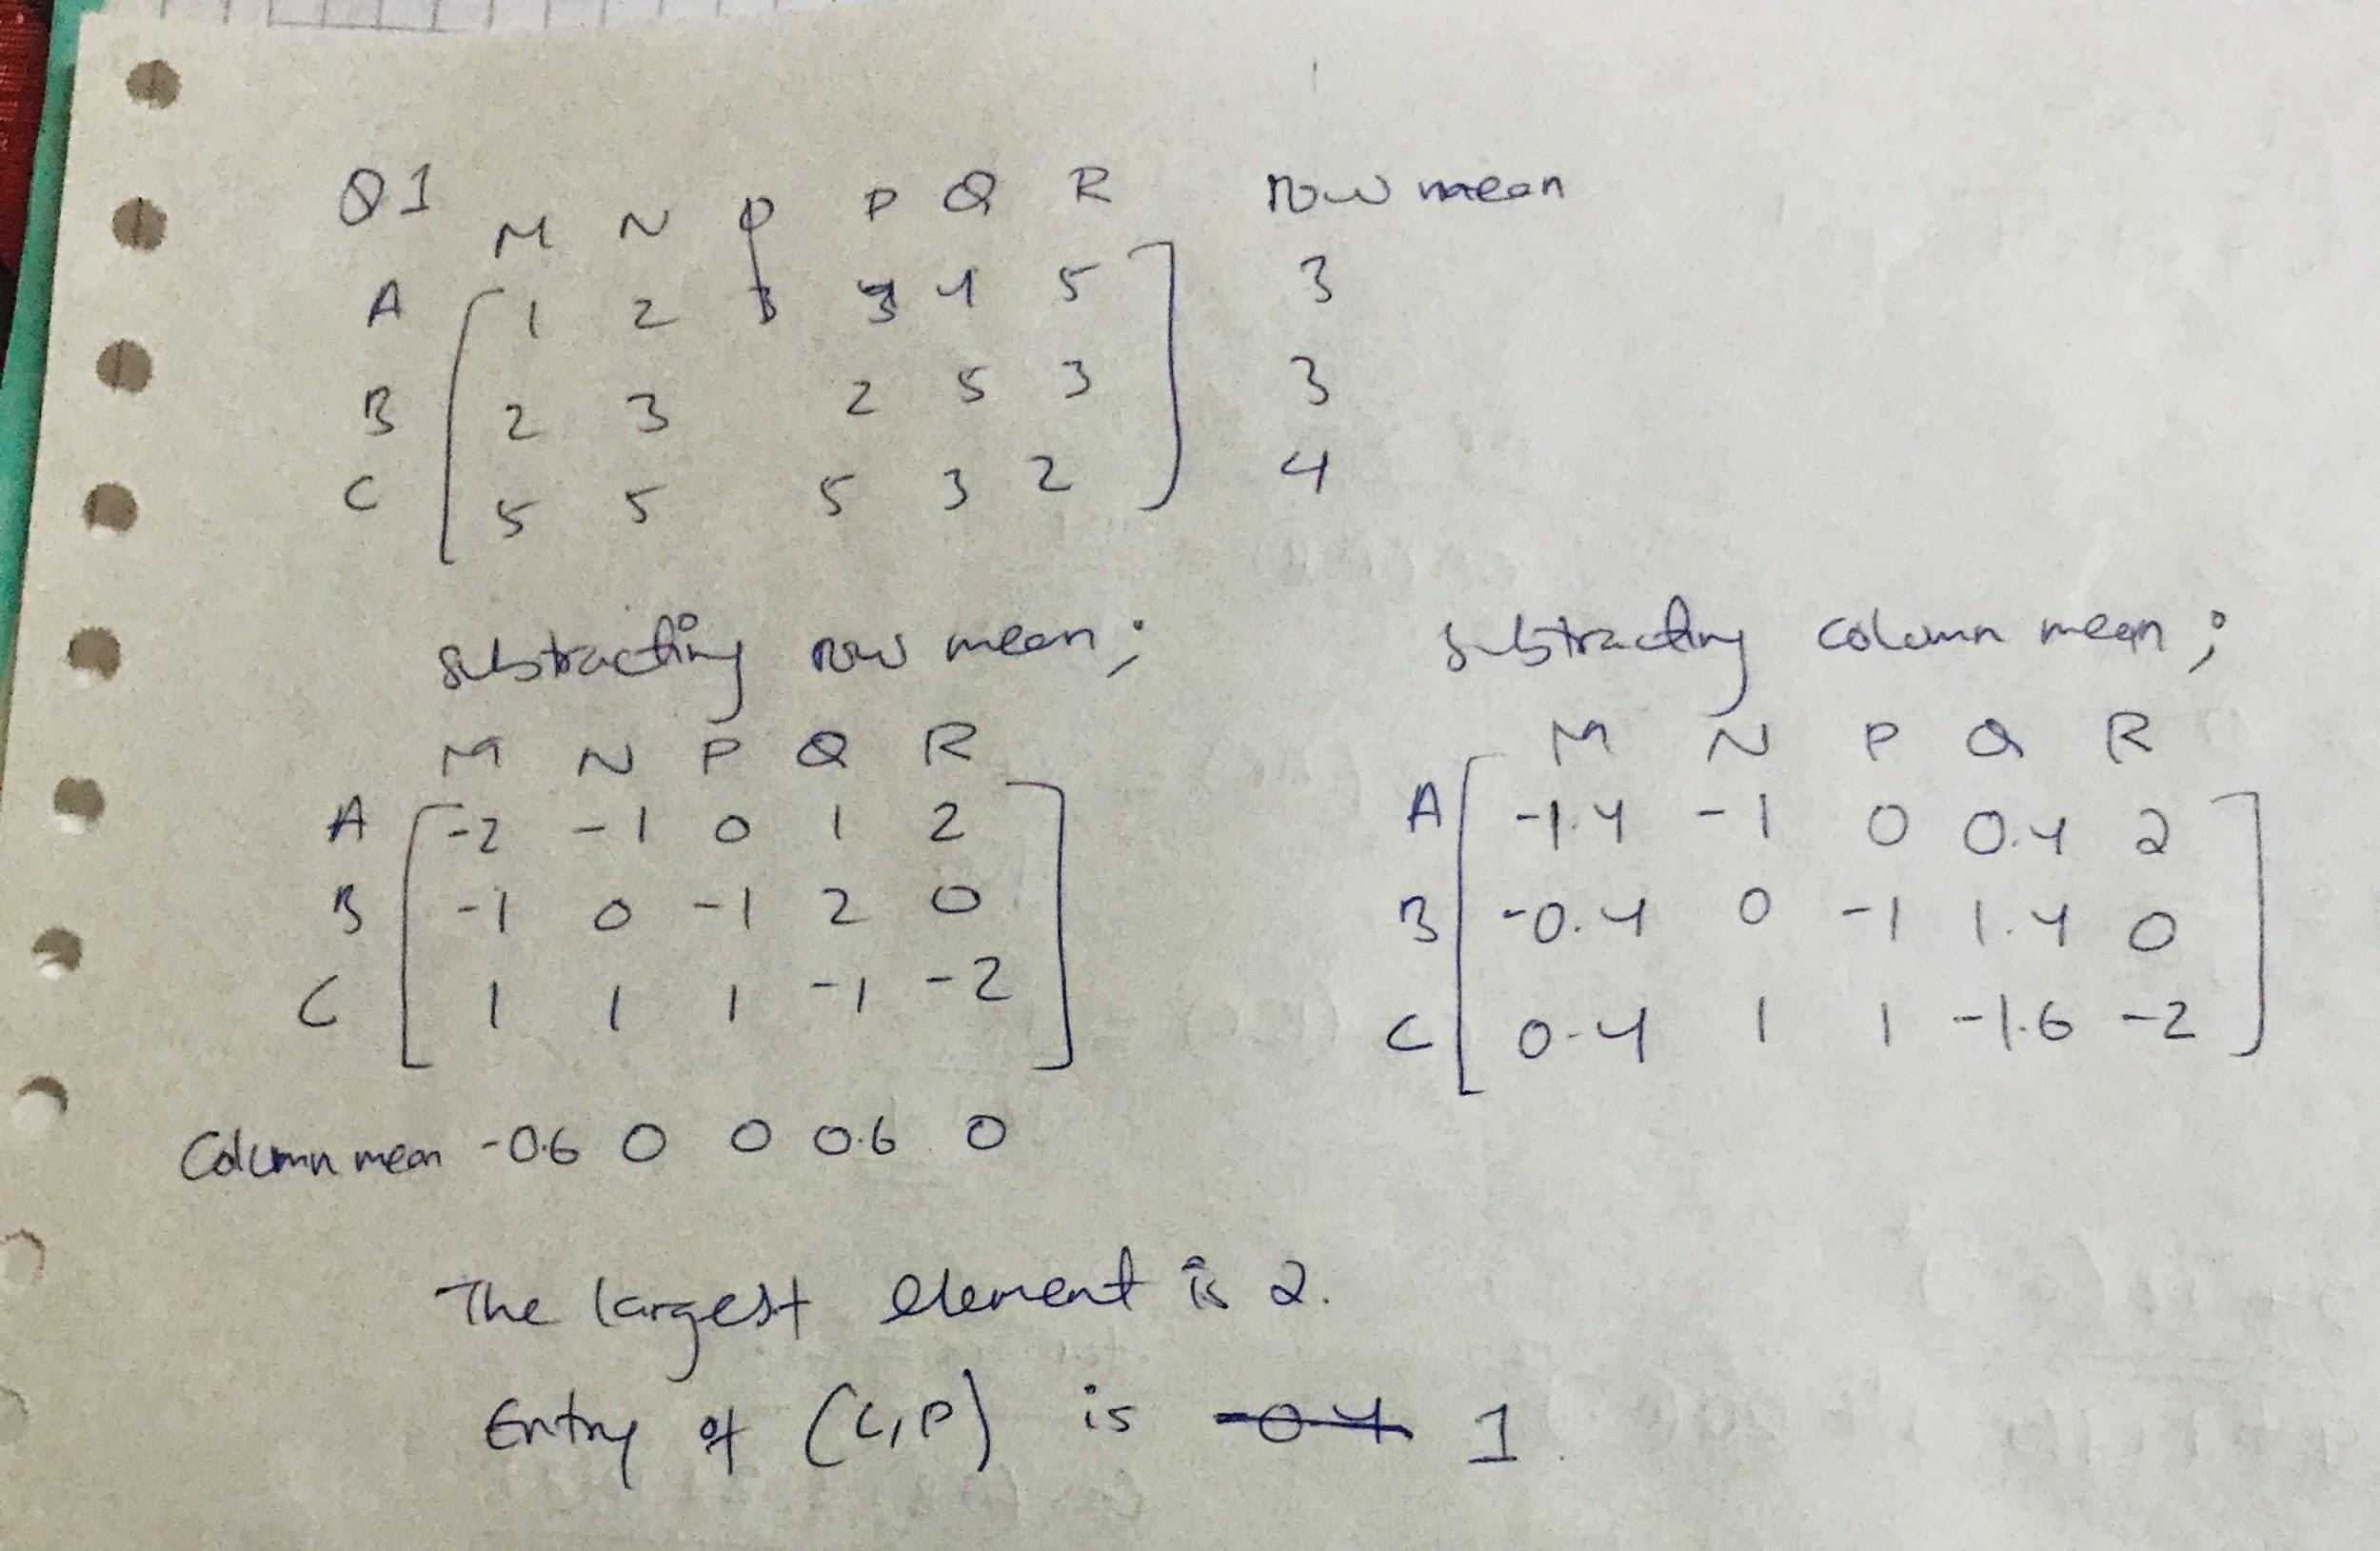 Q1
M N P Q R row mean
A 1 2 3 4 5 3
B 2 3 2 5 3 3
C 5 5 5 3 2 4
subtracting row mean;
M N P Q R
A -2 -1 0 1 2
B -1 0 -1 2 0
C 1 1 1 -1 -2
Column mean -0.6 0 0 0.6 0
subtracting column mean;
M N P Q R
A -1.4 -1 0 0.4 2
B -0.4 0 -1 1.4 0
C 0.4 1 1 -1.6 -2
The largest element is 2.
Entry of (C,P) is -0.4 1.